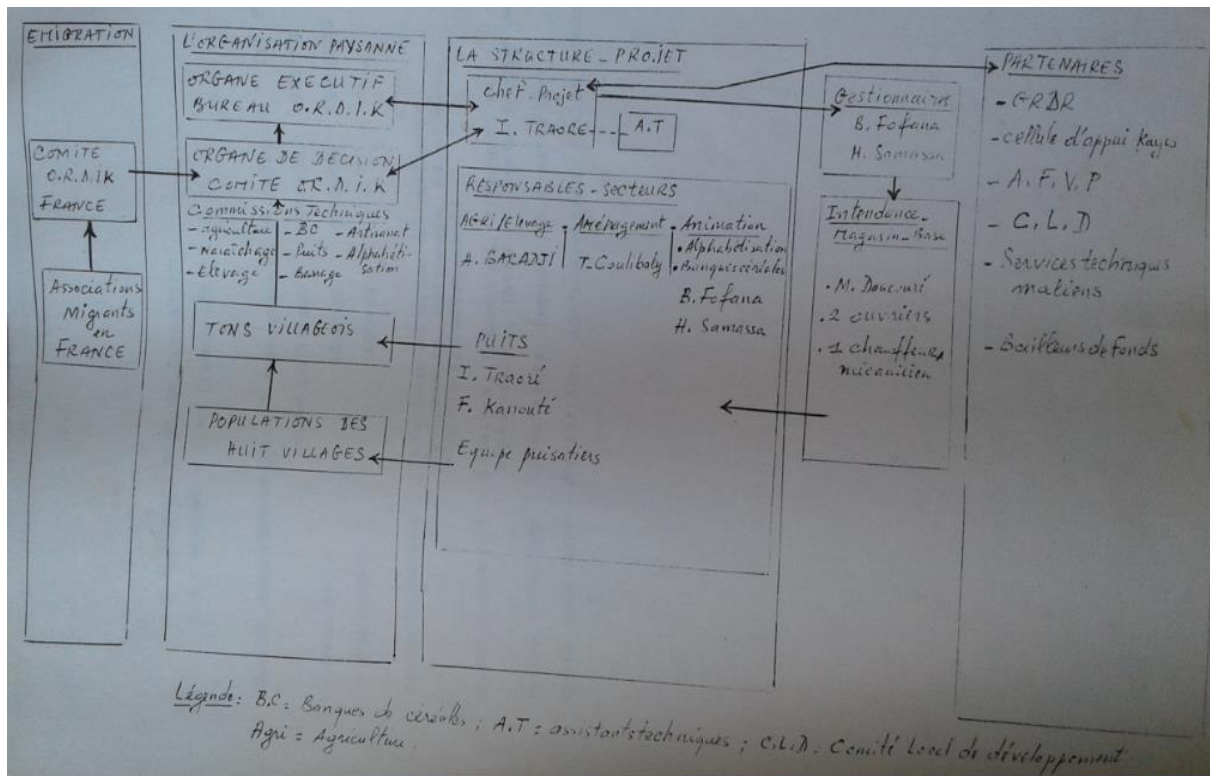 EMIGRATION
COMITE
O.R.D.i.K
FRANCE
Associations
Migrants
en
FRANCE
L'ORGANISATION PAYSANNE
ORGANE EXECUTIF
BUREAU O.R.D.I.K
ORGANE DE DECISION
COMITE O.R.D.i.K
Commissions Techniques
- agriculture
- Maraîchage
- Elevage
- BC
- Puits
- Artisanat
- Alphabéti-
sation
TONS VILLAGEOIS
POPULATIONS DES
HUIT VILLAGES
LA STRUCTURE - PROJET
Chef. Projet
I. TRAORE
A.T
RESPONSABLES - Secteurs
AGRI/Elevage
A. BARADJI
Aménagement
T. Coulibaly
Animation
• Alphabétisation
• Banques céréales
B. Fofana
H. Samassa
PUITS
I. Traoré
F. Kanouté
Equipe puisatiers
Gestionnaires
B. Fofana
H. Samassa
Intendance-
Magasin-Base
• M. Doucouré
• 2 ouvriers
• 1 chauffeur,
mécanicien
PARTENAIRES
- GRDR
- cellule d'appui Kayes
- A.F.V.P
- C.L.D
- Services techniques
maliens
- Bailleurs de fonds
Légende: B.C = Banques de céréales ; A.T = assistants techniques ; C.L.D = Comité Local de développement
Agri = Agriculture.